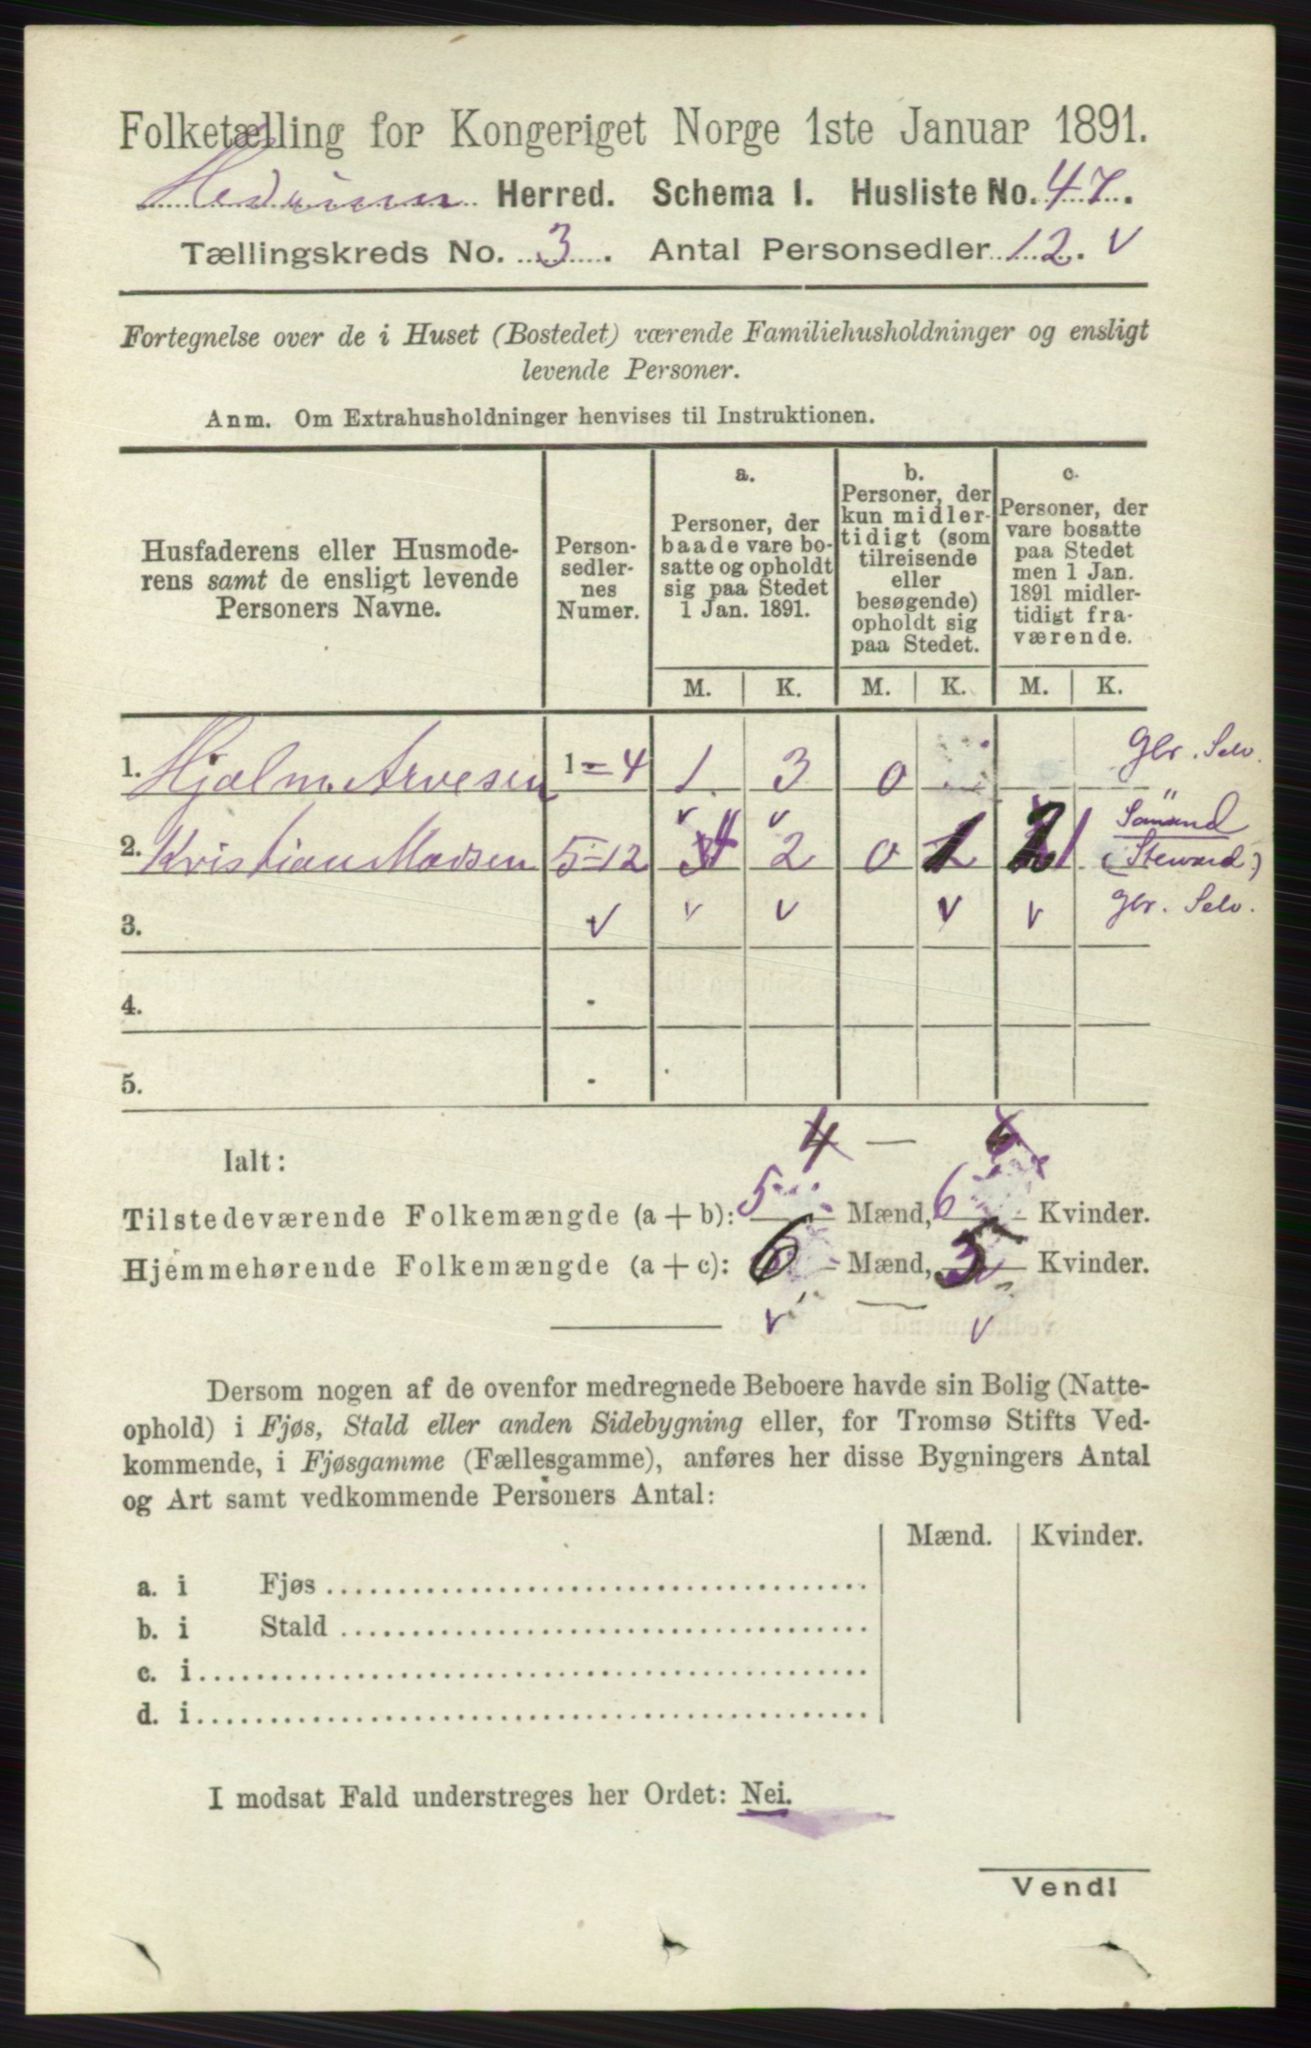 Folketælling for Kongeriget Norge 1ste Januar 1891.
Hedrum Herred. Schema 1. Husliste No. 47.
Tællingskreds No. 3. Antal Personsedler 12. v
Fortegnelse over de i Huset (Bostedet) værende Familiehusholdninger og ensligt
levende Personer.
Anm. Om Extrahusholdninger henvises til Instruktionen.
Husfaderens eller Husmode-
rens samt de ensligt levende
Personers Navne.
Person-
sedler-
nes
Numer.
a.
Personer, der
baade vare bo-
satte og opholdt
sig paa Stedet
1 Jan. 1891.
b.
Personer, der
kun midler-
tidigt (som
tilreisende
eller
besøgende)
opholdt sig
paa Stedet.
c.
Personer, der
vare bosatte
paa Stedet
men 1 Jan.
1891 midler-
tidigt fra-
værende.
M. K. M. K. M. K.
1. Hjalm. Arvesen 1=4 1 3 0 Gbr. Selv.
2. Kristian Madsen 5-12 4 2 0 1 1 Sømand
(Steward)
3. v v v v v Gbr. Selv.
4.
5.
4 — 6
Ialt:
Tilstedeværende Folkemængde (a + b): 5 Mænd, 6 Kvinder.
Hjemmehørende Folkemængde (a + c): 6 Mænd, 5 Kvinder.
v v
Dersom nogen af de ovenfor medregnede Beboere havde sin Bolig (Natte-
ophold) i Fjøs, Stald eller anden Sidebygning eller, for Tromsø Stifts Ved-
kommende, i Fjøsgamme (Fællesgamme), anføres her disse Bygningers Antal
og Art samt vedkommende Personers Antal:
Mænd. Kvinder.
a. i Fjøs
b. i Stald
c. i
d. i
I modsat Fald understreges her Ordet: Nei.
Vend!